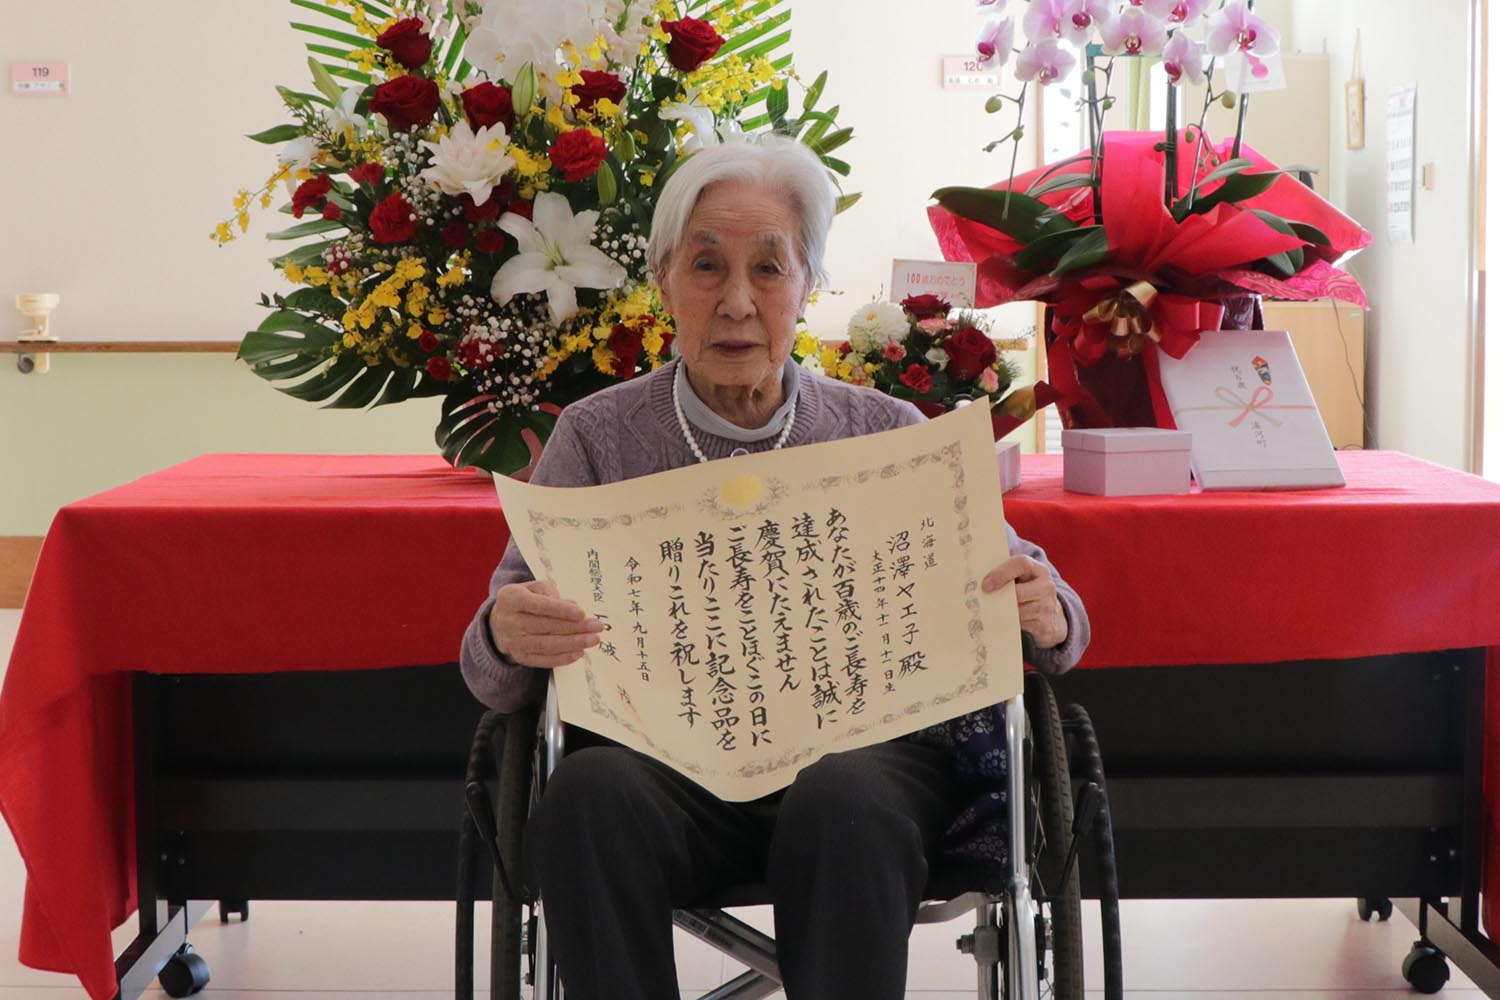 119
120
100歳おめでとう
祝百歳
浦河町
北海道
沼澤ヤエ子殿
大正十四年十一月十一日生
あなたが百歳のご長寿を
達成されたことは誠に
慶賀にたえません
ご長寿をことほぐこの日に
当たりここに記念品を
贈りこれを祝します
令和七年九月十五日
内閣総理大臣 石破